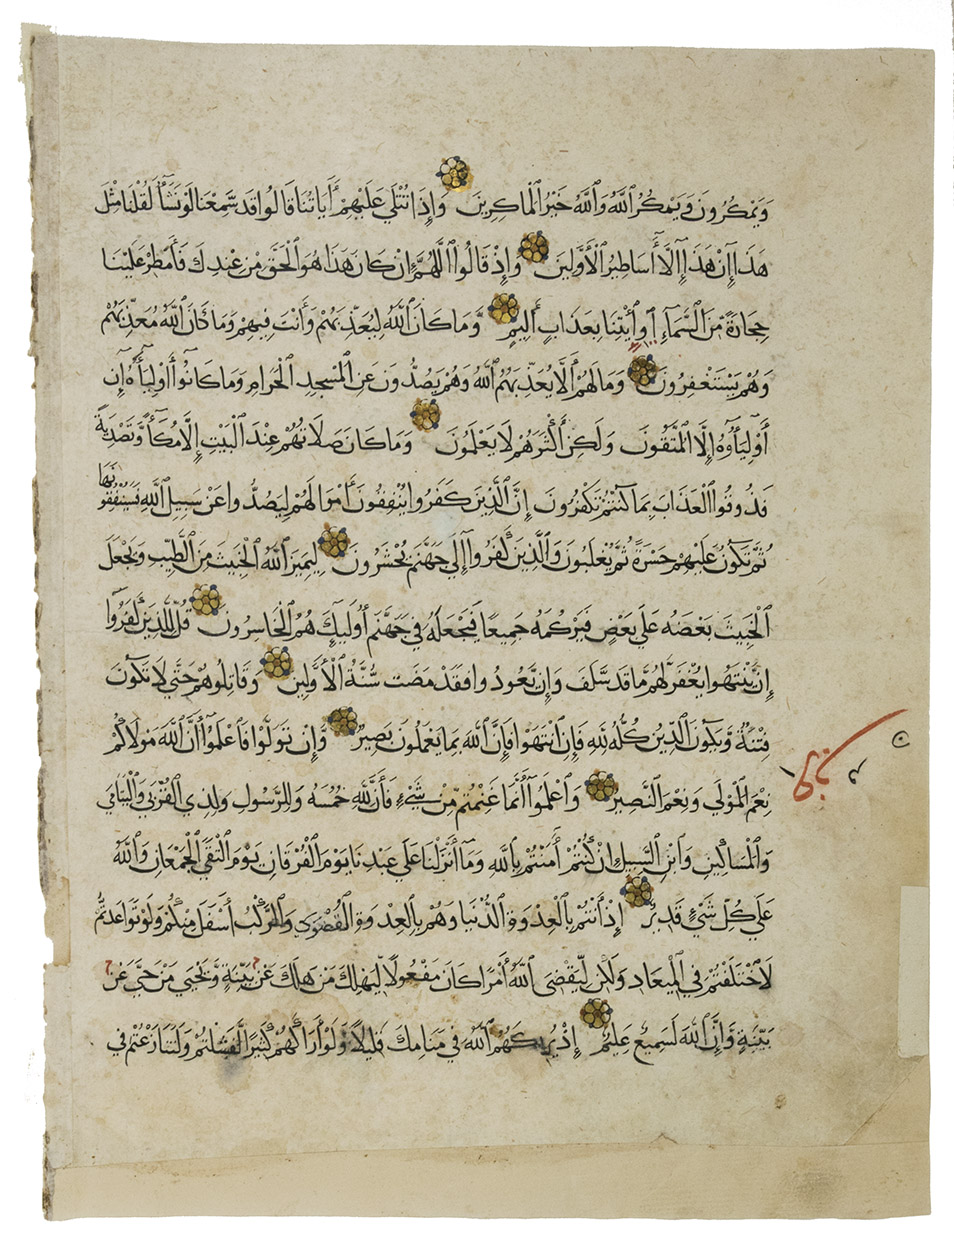 وَيَمْكُرُونَ وَيَمْكُرُ ٱللَّهُ وَٱللَّهُ خَيْرُ ٱلْمَاكِرِينَ وَإِذَا تُتْلَي عَلَيْهِمْ أَيَاتُنَا قَالُوا قَد سَّمِعْنَا لَوْ نَشَآءُ لَقُلْنَا مِثْلَ
هَذَا إِنْ هَذَا إِلَّا أَسَاطِيرُ ٱلْأَوَّلِينَ وَإِذْ قَالُوا ٱللَّهُمَّ إِنْ كَانَ هَذَا هُوَ ٱلْحَقَّ مِنْ عِنْدِكَ فَأَمْطِرْ عَلَيْنَا
حِجَارَةً مِّنَ ٱلسَّمَآءِ أَوِ ٱئْتِنَا بِعَذَابٍ أَلِيمٍ وَّمَا كَانَ ٱللَّهُ لِيُعَذِّبَهُمْ وَأَنْتَ فِيهِمْ وَمَا كَانَ ٱللَّهُ مُعَذِّبَهُمْ
وَهُمْ يَسْتَغْفِرُونَ وَمَا لَهُمْ أَلَّا يُعَذِّبَهُمُ ٱللَّهُ وَهُمْ يَصُدُّونَ عَنِ ٱلْمَسْجِدِ ٱلْحَرَامِ وَمَا كَانُوٓا أَوْلِيَآءَهُ إِن
أَوْلِيَآؤُهُ إِلَّا ٱلْمُتَّقُونَ وَلَكِنَّ أَكْثَرَهُمْ لَا يَعْلَمُونَ وَمَا كَانَ صَلَاتُهُمْ عِنْدَ ٱلْبَيْتِ إِلَّا مُكَآءً وَّتَصْدِيَةً
فَذُوقُوا ٱلْعَذَابَ بِمَا كُنْتُمْ تَكْفُرُونَ إِنَّ ٱلَّذِينَ كَفَرُوا يُنْفِقُونَ أَمْوَالَهُمْ لِيَصُدُّوا عَنْ سَبِيلِ ٱللَّهِ فَسَيُنْفِقُونَهَا
ثُمَّ تَكُونُ عَلَيْهِمْ حَسْرَةً ثُمَّ يُغْلَبُونَ وَٱلَّذِينَ كَفَرُوا إِلَي جَهَنَّمَ يُحْشَرُونَ لِيَمِيزَ ٱللَّهُ ٱلْخَبِيثَ مِنَ ٱلطَّيِّبِ وَيَجْعَلَ
ٱلْخَبِيثَ بَعْضَهُ عَلَي بَعْضٍ فَيَرْكُمَهُ جَمِيعًا فَيَجْعَلَهُ فِي جَهَنَّمَ أُولَيِكَ هُمُ ٱلْخَاسِرُونَ قُل لِّلَّذِينَ كَفَرُوٓا
إِنْ يَّنْتَهُوا يُغْفَرْ لَهُم مَّا قَد سَّلَفَ وَإِن يَّعُودُوا فَقَدْ مَضَت سُّنَّةُ ٱلْأَوَّلِينَ وَقَاتِلُوهُمْ حَتَّي لَا تَكُونَ
فِتْنَةٌ وَّيَكُونَ ٱلدِّينُ كُلُّهُ لِلَّهِ فَإِنِ ٱنْتَهَوْا فَإِنَّ ٱللَّهَ بِمَا يَعْمَلُونَ بَصِيرٌ وَّإِنْ تَوَلَّوْا فَاعْلَمُوٓا أَنَّ ٱللَّهَ مَوْلَاكُمْ
نِعْمَ ٱلْمَوْلَي وَنِعْمَ ٱلنَّصِيرُ وَٱعْلَمُوٓا أَنَّمَا غَنِمْتُم مِّنْ شَيْءٍ فَأَنَّ لِلَّهِ خُمُسَهُ وَلِلرَّسُولِ وَلِذِي ٱلْقُرْبَي وَٱلْيَتَامَي
وَٱلْمَسَاكِينِ وَٱبْنِ ٱلسَّبِيلِ إِنْ كُنْتُمْ أَمَنْتُمْ بِاللَّهِ وَمَآ أَنْزَلْنَا عَلَي عَبْدِنَا يَوْمَ ٱلْفُرْقَانِ يَوْمَ ٱلْتَقَي ٱلْجَمْعَانِ وَٱللَّهُ
عَلَي كُلِّ شَيْءٍ قَدِيرٌ إِذْ أَنْتُمْ بِالْعِدْوَةِ ٱلدُّنْيَا وَهُمْ بِالْعِدْوَةِ ٱلْقُصْوَي وَٱلرَّكْبُ أَسْفَلَ مِنْكُمْ وَلَوْ تَوَاعَدتُّمْ
لَاخْتَلَفْتُمْ فِي ٱلْمِيعَادِ وَلَكِن لِّيَقْضِيَ ٱللَّهُ أَمْرًا كَانَ مَفْعُولًا لِّيَهْلِكَ مَنْ هَلَكَ عَنْ بَيِّنَةٍ وَّيَحْيَي مَنْ حَيَّ عَنْ
بَيِّنَةٍ وَّإِنَّ ٱللَّهَ لَسَمِيعٌ عَلِيمٌ إِذْ يُرِيكَهُمُ ٱللَّهُ فِي مَنَامِكَ قَلِيلًا وَّلَوْ أَرَاكَهُمْ كَثِيرًا لَّفَشِلْتُمْ وَلَتَنَازَعْتُمْ فِي